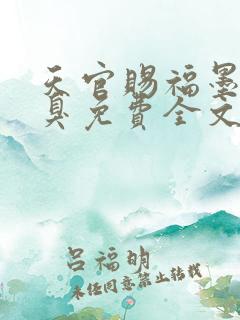 天官赐福墨
具免費全文
吕福明
未经同意禁止转载